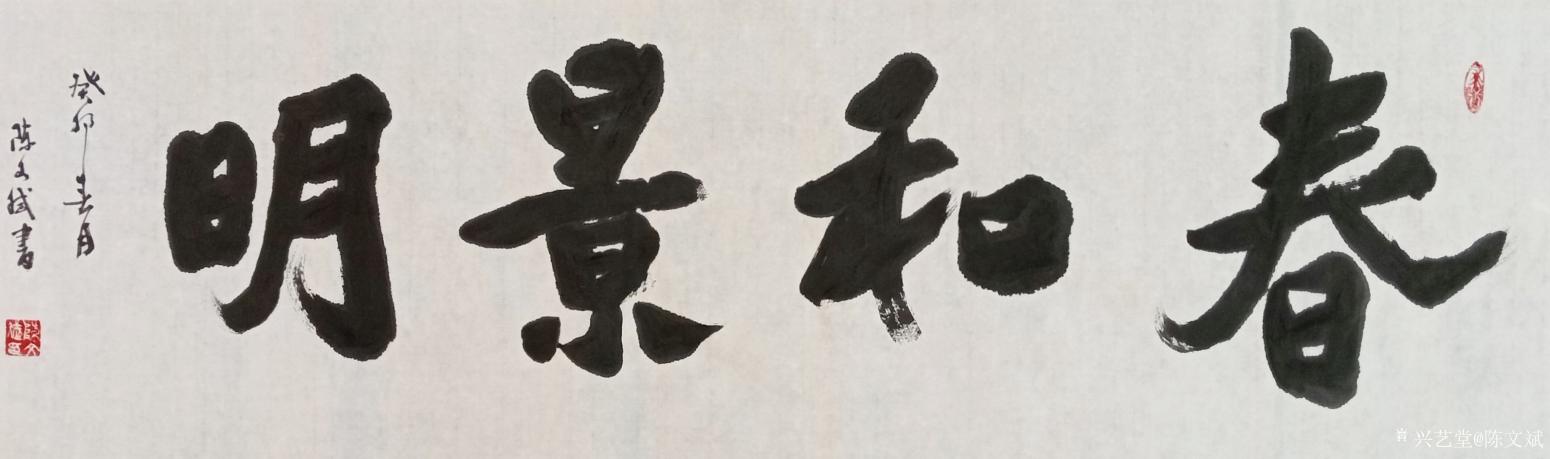 春和景明
癸卯春月
陈文斌書
兴艺堂@陈文斌